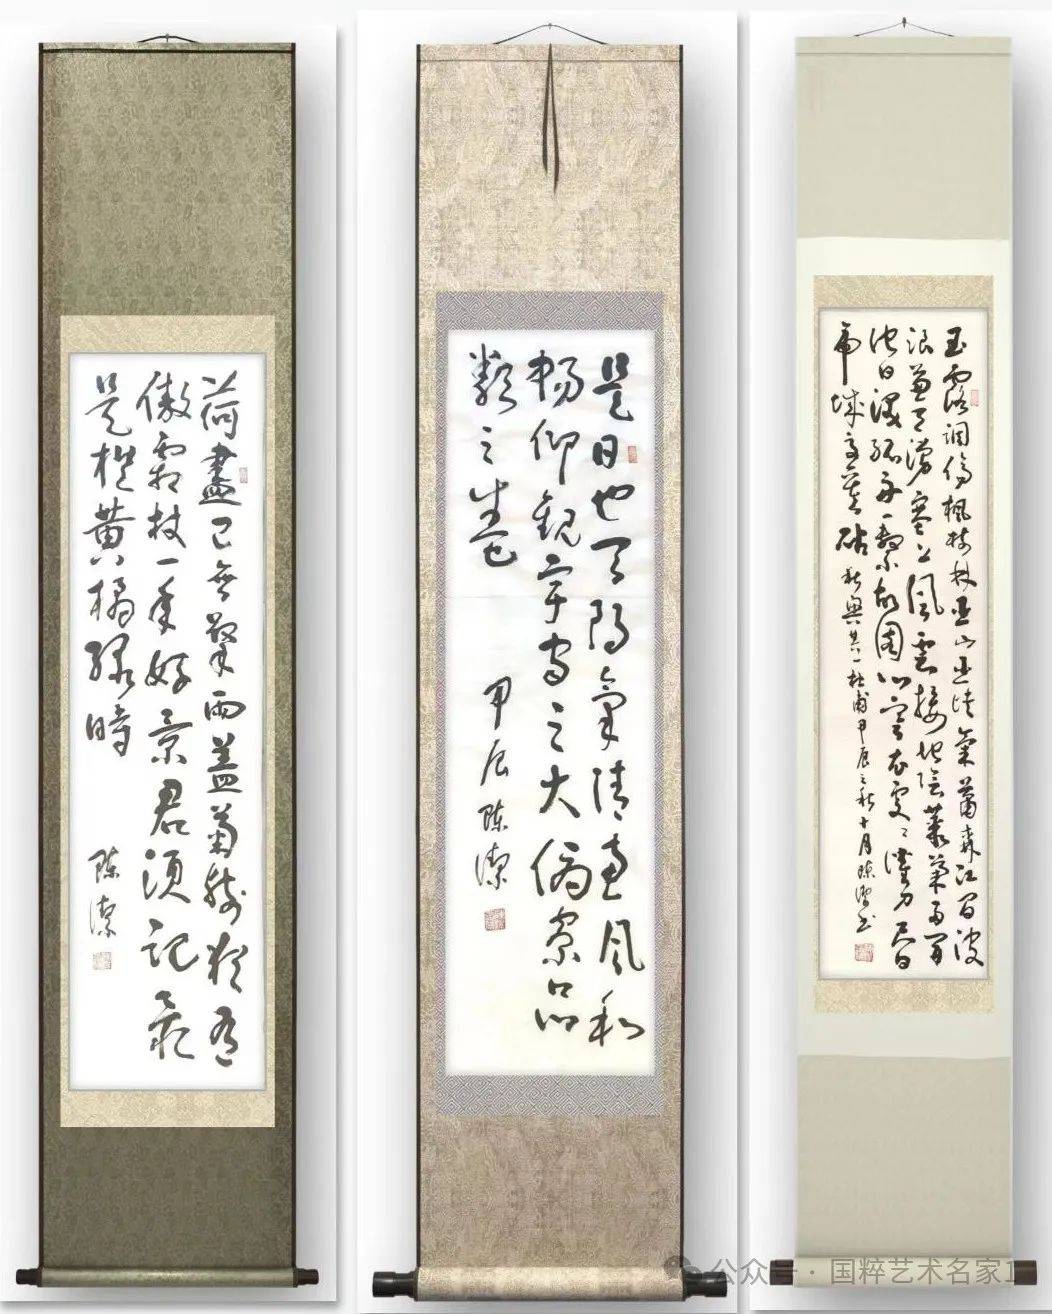 荷盡已無擎雨蓋菊殘猶有
傲霜枝一年好景君須記最
是橙黄橘緑時
陈潔
是日也天朗氣清惠風和
暢仰觀宇宙之大俯察品
類之盛
甲辰陈潔
玉露凋傷楓樹林巫山巫峡氣蕭森江間波
浪兼天湧塞上風雲接地陰叢菊兩開
他日淚孤舟一繫故園心寒衣處々催刀尺白
帝城高急暮砧秋興其一杜甫甲辰之秋十月陳潔书
公众号·国粹艺术名家1